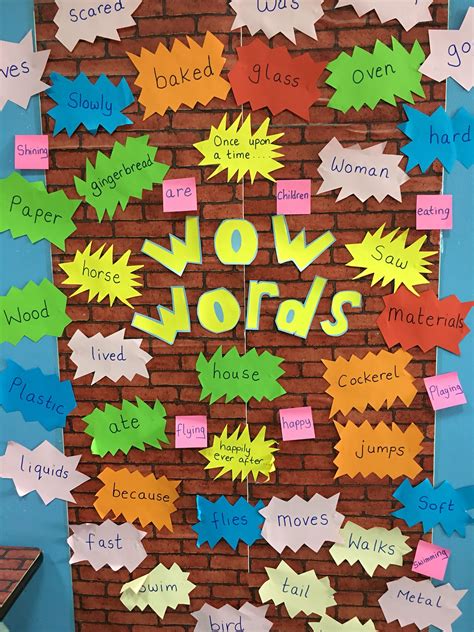 scared
was
ves
baked
glass
oven
go
Slowly
hard
Once upon
a time....
Shining
gingerbread
Woman
are
Children
eating
Paper
WOW
words
horse
Saw
Wood
materials
lived
house
Cockerel
Plastic
Playing
ate
flying
happy
happily
ever after
jumps
liquids
because
Soft
flies
moves
fast
Walks
swimming
Swim
tail
Metal
bird